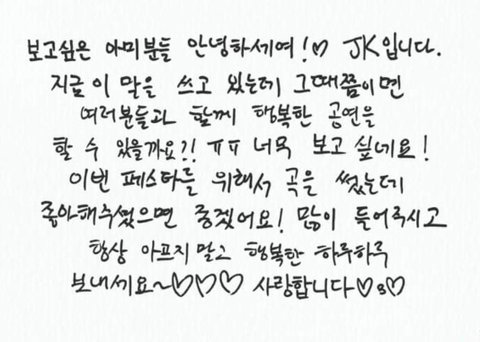 보고싶은 아미분들 안녕하세여!♡ JK입니다.
지금 이 말을 쓰고 있는데 그때쯤이면
여러분들과 함께 행복한 공연을
할 수 있을까요?! ㅠㅠ 너무 보고 싶네요!
이번 페스타를 위해서 곡을 썼는데
좋아해주셨으면 좋겠어요! 많이 들어주시고
항상 아프지 말고 행복한 하루하루
보내세요~♡♡♡ 사랑합니다♡s♡